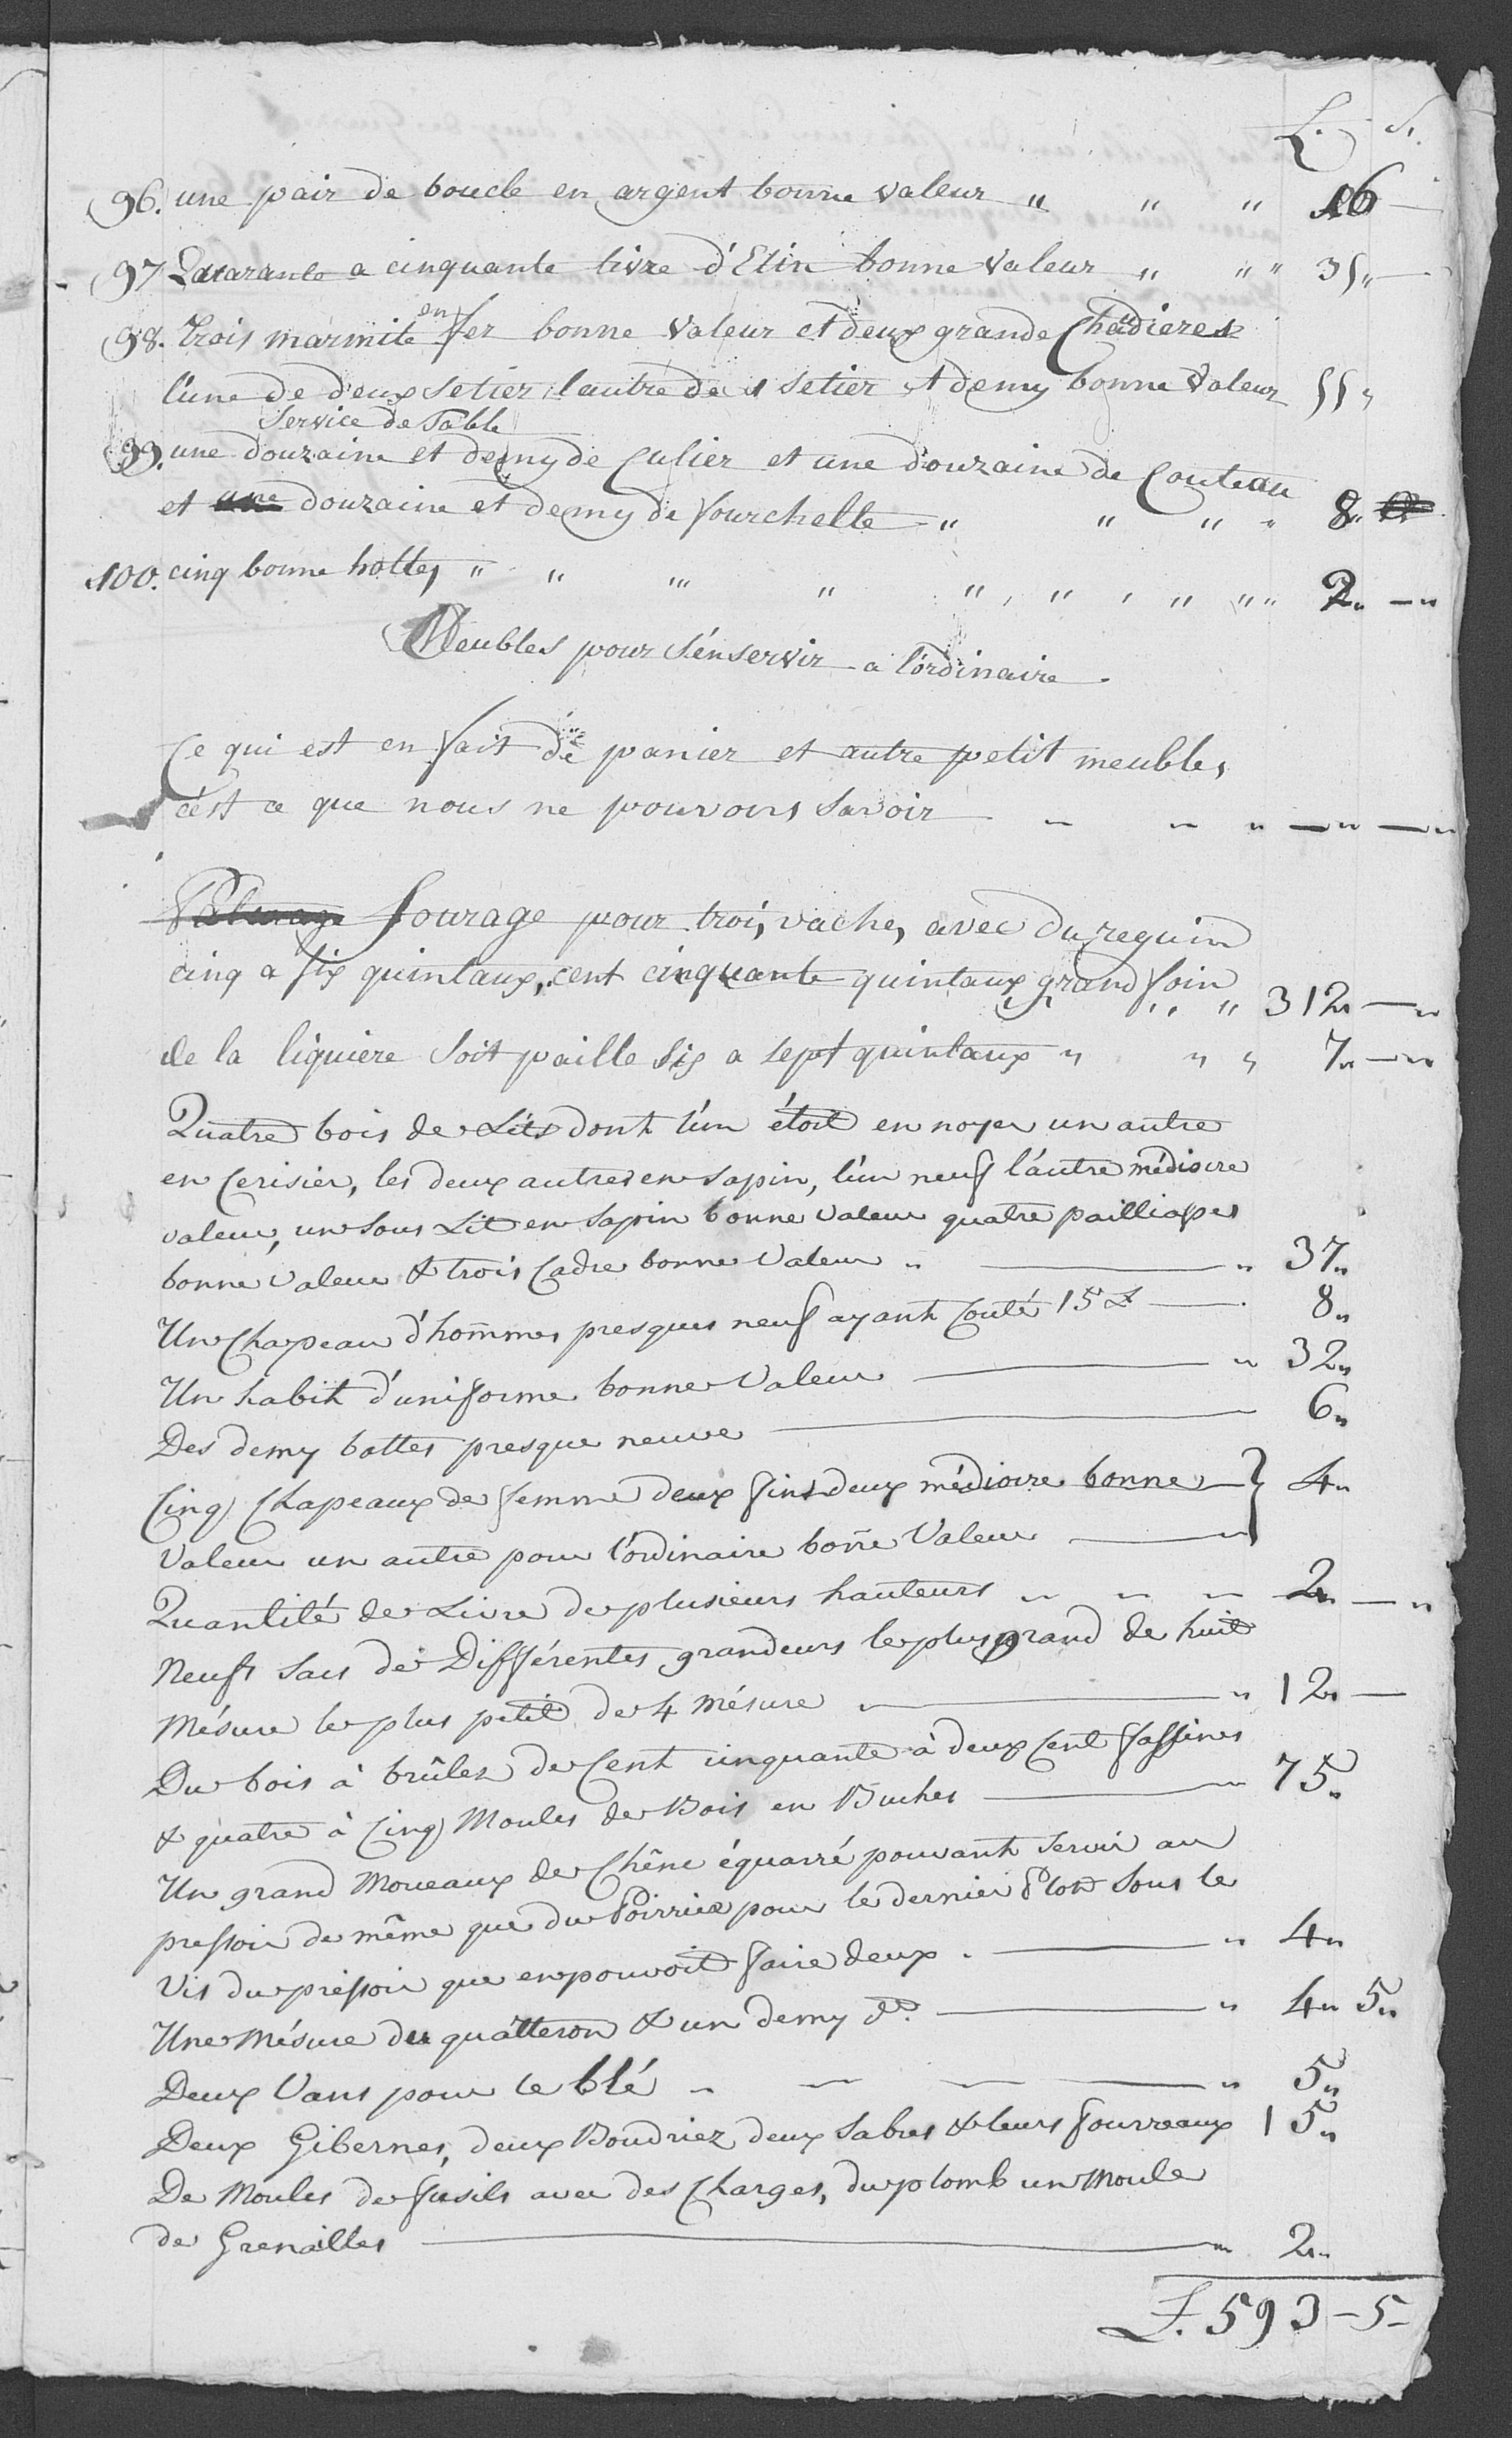 L. S.
96. une pair de boucle en argent bonne valeur " " " 16 —
97 Quarante a cinquante livre d'Etin bonne valeur " " " 35 " —
98. trois marmite en fer bonne valeur et deux grande Chadieres
l'une de deux setier l'autre de 1 setier et demy bonne valeur 55 "
Service de Table
99. une douzaine et demy de Culier et une douzaine de Couteau
et une douzaine et demy de fourchette " " " " 8 "
100. cinq bonne hottes " " " " " " " " 2 " — "
Meubles pour s'en servir a l'ordinaire.
Ce qui est en fait de panier et autre petit meubles,
c'est ce que nous ne pouvons savoir " " " — " — "
fourage pour trois vaches avec du reguin
cinq a six quintaux, cent cinquante quintaux grand foin " " 312 " — "
de la liquiere soit paille six a sept quintaux " " " 7 " — "
Quatre bois de Lits dont l'un étoit en noyer un autre
en Cerisier, les deux autres en sapin, l'un neuf l'autre médiocre
valeur, un sous Lit en sapin bonne valeur quatre pailliasses
bonne valeur & trois Cadre bonne Valeur " — " 37 "
Un Chapeau d'hommes presques neuf ayant Couté 15 L — 8 "
Un habit d'uniforme bonne Valeur — " 32 "
Des demy bottes presque neuve — 6 "
Cinq Chapeaux de femme deux fins deux médiocre bonne — } 4 "
Valeur un autre pour l'ordinaire bonne Valeur — "
Quantité de Livre de plusieurs hauteurs " " " 2 " — "
Neufs sacs de Différentes grandeurs le plus grand de huit
Mésure le plus petit de 4 mésure — " 12 " —
Du bois à brûler de Cent cinquante à deux Cent fassines
& quatre à Cinq Moules de Bois en Buches — " 75 "
Un grand Moueaux de Chêne équarré pouvant servir au
pressoir de même que du Poirrier pour le dernier Plot sous le
Vis du pressoir que en pouvoit faire deux . — " 4 "
Une Mésure du quatteron & un demy do. — " 4 " 5 "
Deux Vans pour le blé " — — — " 5 "
Deux Gibernes, deux Boudriez deux sabres & leurs fourreaux 15 "
De Moules de fusils avec des Charges, du plomb un Moule
de Grenailles — " 2 "
L. 593 – 5 –